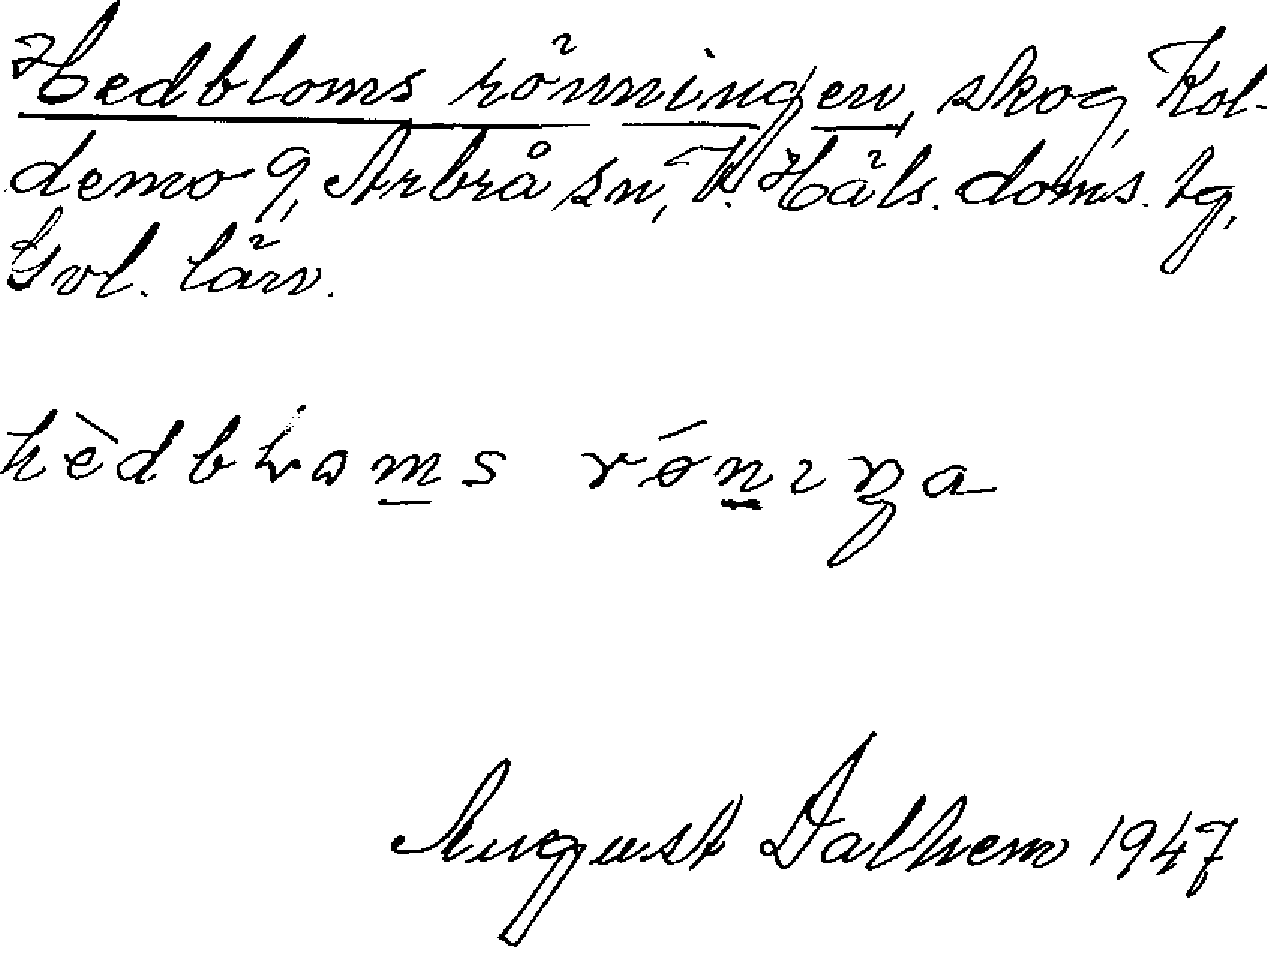 Hedbloms rönningen, skog, Kol-
demo 9, Arbrå sn, V. Häls. doms. tg,
Gvl. län.
hèdbloms rǿnıŋa
August Dalhem 1947